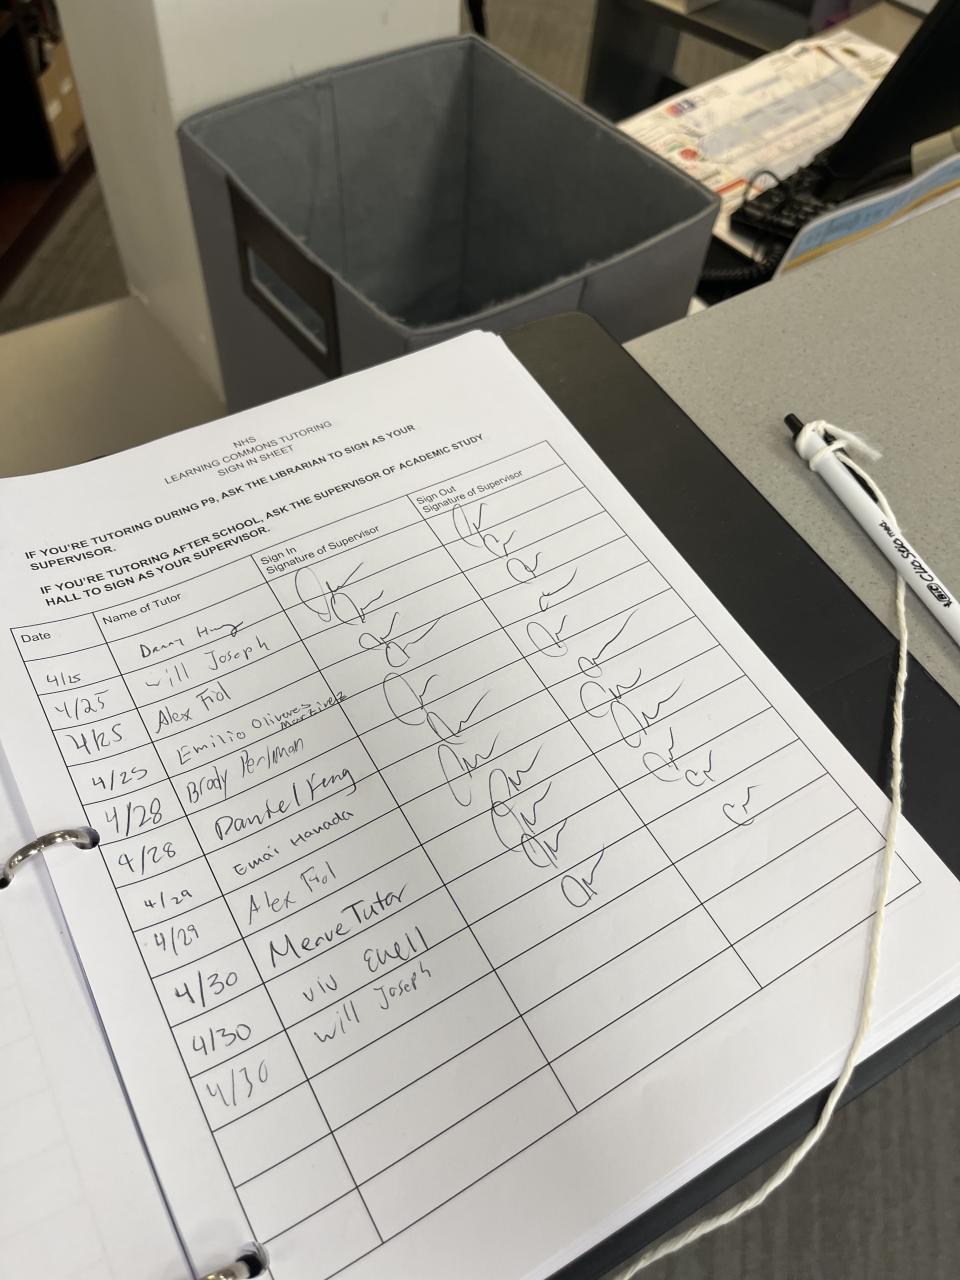 NHS
LEARNING COMMONS TUTORING
SIGN IN SHEET
IF YOU'RE TUTORING DURING P9, ASK THE LIBRARIAN TO SIGN AS YOUR
SUPERVISOR.
IF YOU'RE TUTORING AFTER SCHOOL, ASK THE SUPERVISOR OF ACADEMIC STUDY
HALL TO SIGN AS YOUR SUPERVISOR.
Date Name of Tutor Sign In Signature of Supervisor Sign Out Signature of Supervisor
4/25 Danny
4/25 Will Joseph
4/25 Alex Fiol
4/25 Emilio Olivares Martinez
4/28 Brody Perlman
4/28 Daniel Yeng
4/29 Hamada
4/29 Alex Fiol
4/30 Merve Tutar
4/30 viv Ewell
4/30 will Joseph